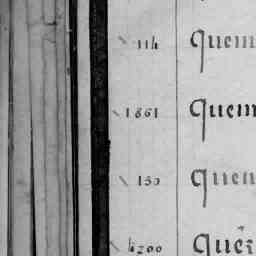 114 Quem
1861 Quem
150 Quem
h200 Quẽ